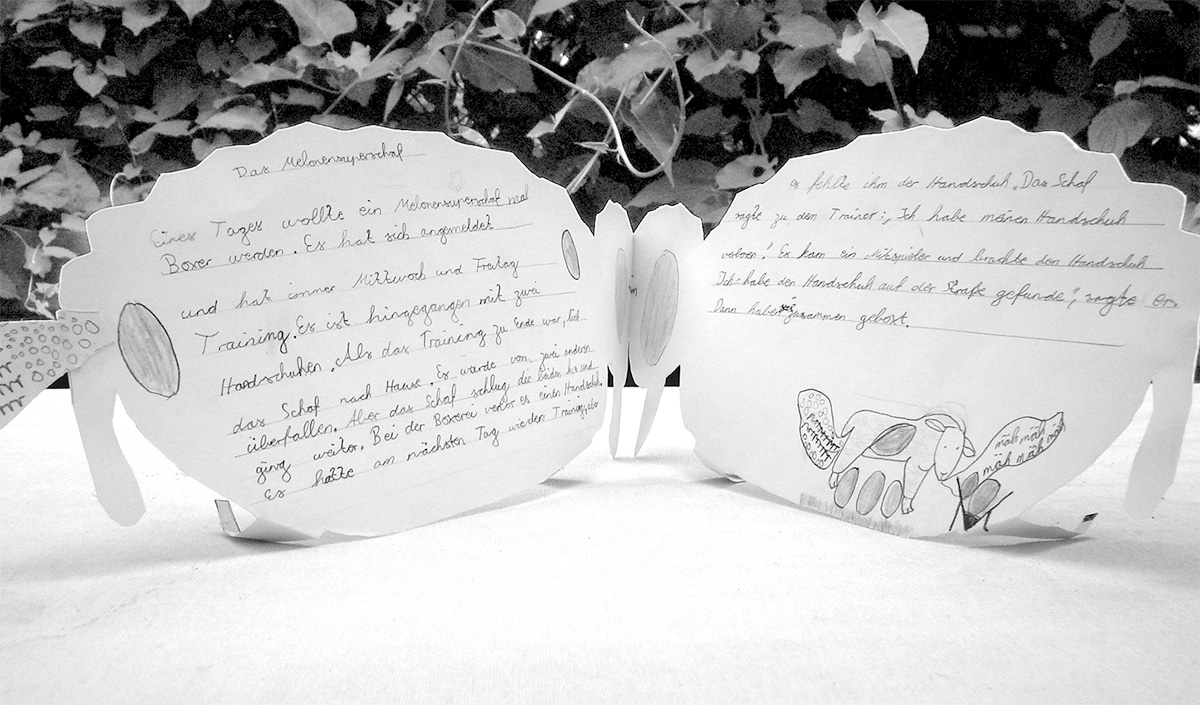 Das Melonensuperschaf
Eines Tages wollte ein Melonensuperschaf mal
Boxer werden. Es hat sich angemeldet
und hat immer Mittwoch und Freitag
Training. Es ist hingegangen mit zwei
Handschuhen. Als das Training zu Ende war, lief
das Schaf nach Hause. Es wurde von zwei anderen
überfallen. Aber das Schaf schlug die beiden k.o und
ging weiter. Bei der Boxerei verlor es einen Handschuh.
Es hatte am nächsten Tag wieder Training, aber
es fehlte ihm der Handschuh. Das Schaf
sagte zu den Trainer: „Ich habe meinen Handschuh
verloren“. Es kam ein Mitspieler und brachte den Handschuh
„Ich habe den Handschuh auf der Straße gefunde“, sagte er.
Dann haben sie zusammen geboxt.
mäh mäh
mäh mäh mäh mäh